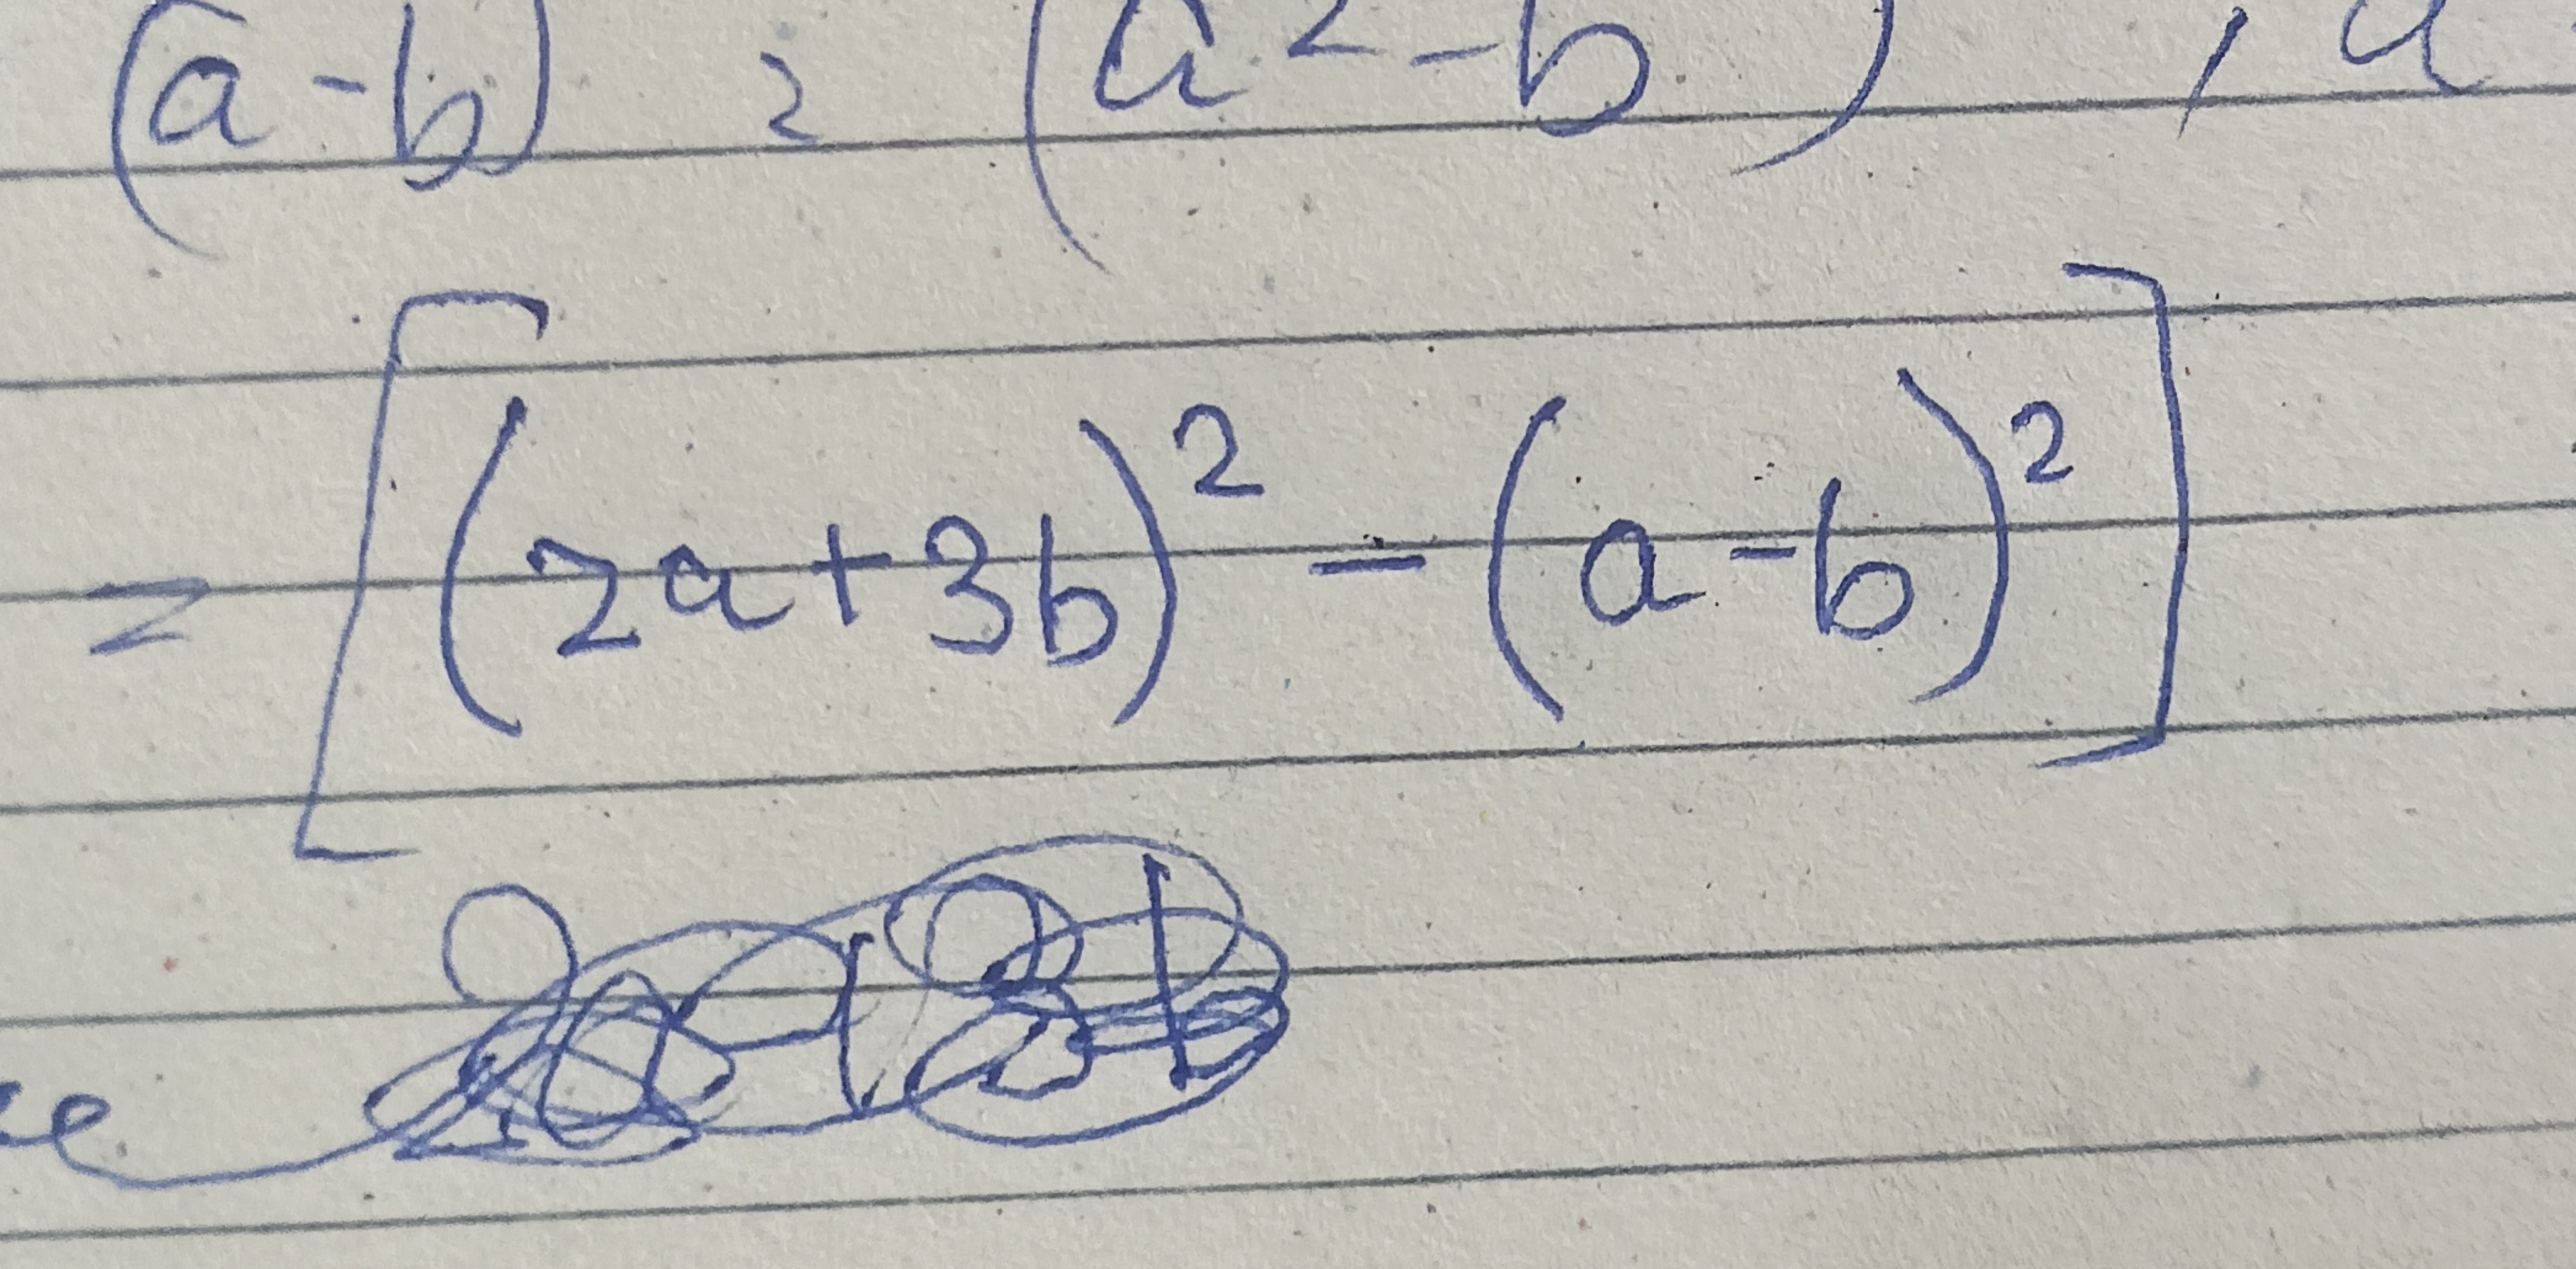 (a-b) = (a² - b ) ,
= [(2a+3b)² - (a-b)²]